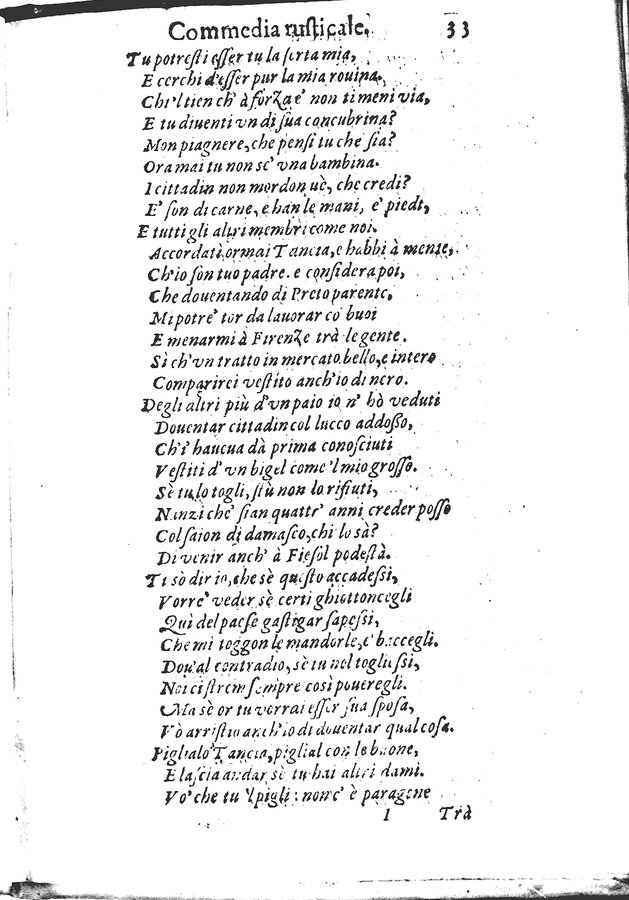 Commedia rusticale. 33
Tu potresti esser tu la sorta mia,
E cerchi d'esser pur la mia rouina.
Chi'l tien ch' à forza e' non ti meni via,
E tu diuenti vn di sua concubrina?
Mon piagnere, che pensi tu che sia?
Ora mai tu non se' vna bambina.
I cittadin non mordon uè, che credi?
E' son di carne, e han le mani, e' piedi,
E tutti gli altri membri come noi.
Accordati ormai Tancia, e habbi à mente,
Ch'io son tuo padre. e considera poi,
Che douentando di Preto parente,
Mi potre' tor da lauorar co buoi
E menarmi à Firenze trà le gente.
Sì ch'vn tratto in mercato bello, e intero
Comparirei vestito anch'io di nero.
Degli altri più d'vn paio io n' hò veduti
Douentar cittadin col lucco addosso,
Ch'i' haueua dà prima conosciuti
Vestiti d'vn bigel come 'l mio grosso.
Sè tu lo togli, s tù non lo rifiuti,
Nanzi che' sian quattr' anni creder posso
Col saion di damasco, chi lo sà?
Di venir anch' à Fiesol podestà.
Ti sò dir io, che sè questo accadessi,
Vorre' veder sè certi ghiottoncegli
Quì del paese gastigar sapessi,
Che mi toggon le mandorle, e' baccegli.
Dou' al contradio, sè tu nol togliessi,
Noi ci starem sempre così poueregli.
Ma sè or tu vorrai esser sua sposa,
Vò arristio anch'io di douentar qual cosa.
Piglialo Tancia, piglial con le buone,
E lascia andar sè tu hai altri dami.
Vo' che tu 'l pigli: non c' è paragone
I Trà